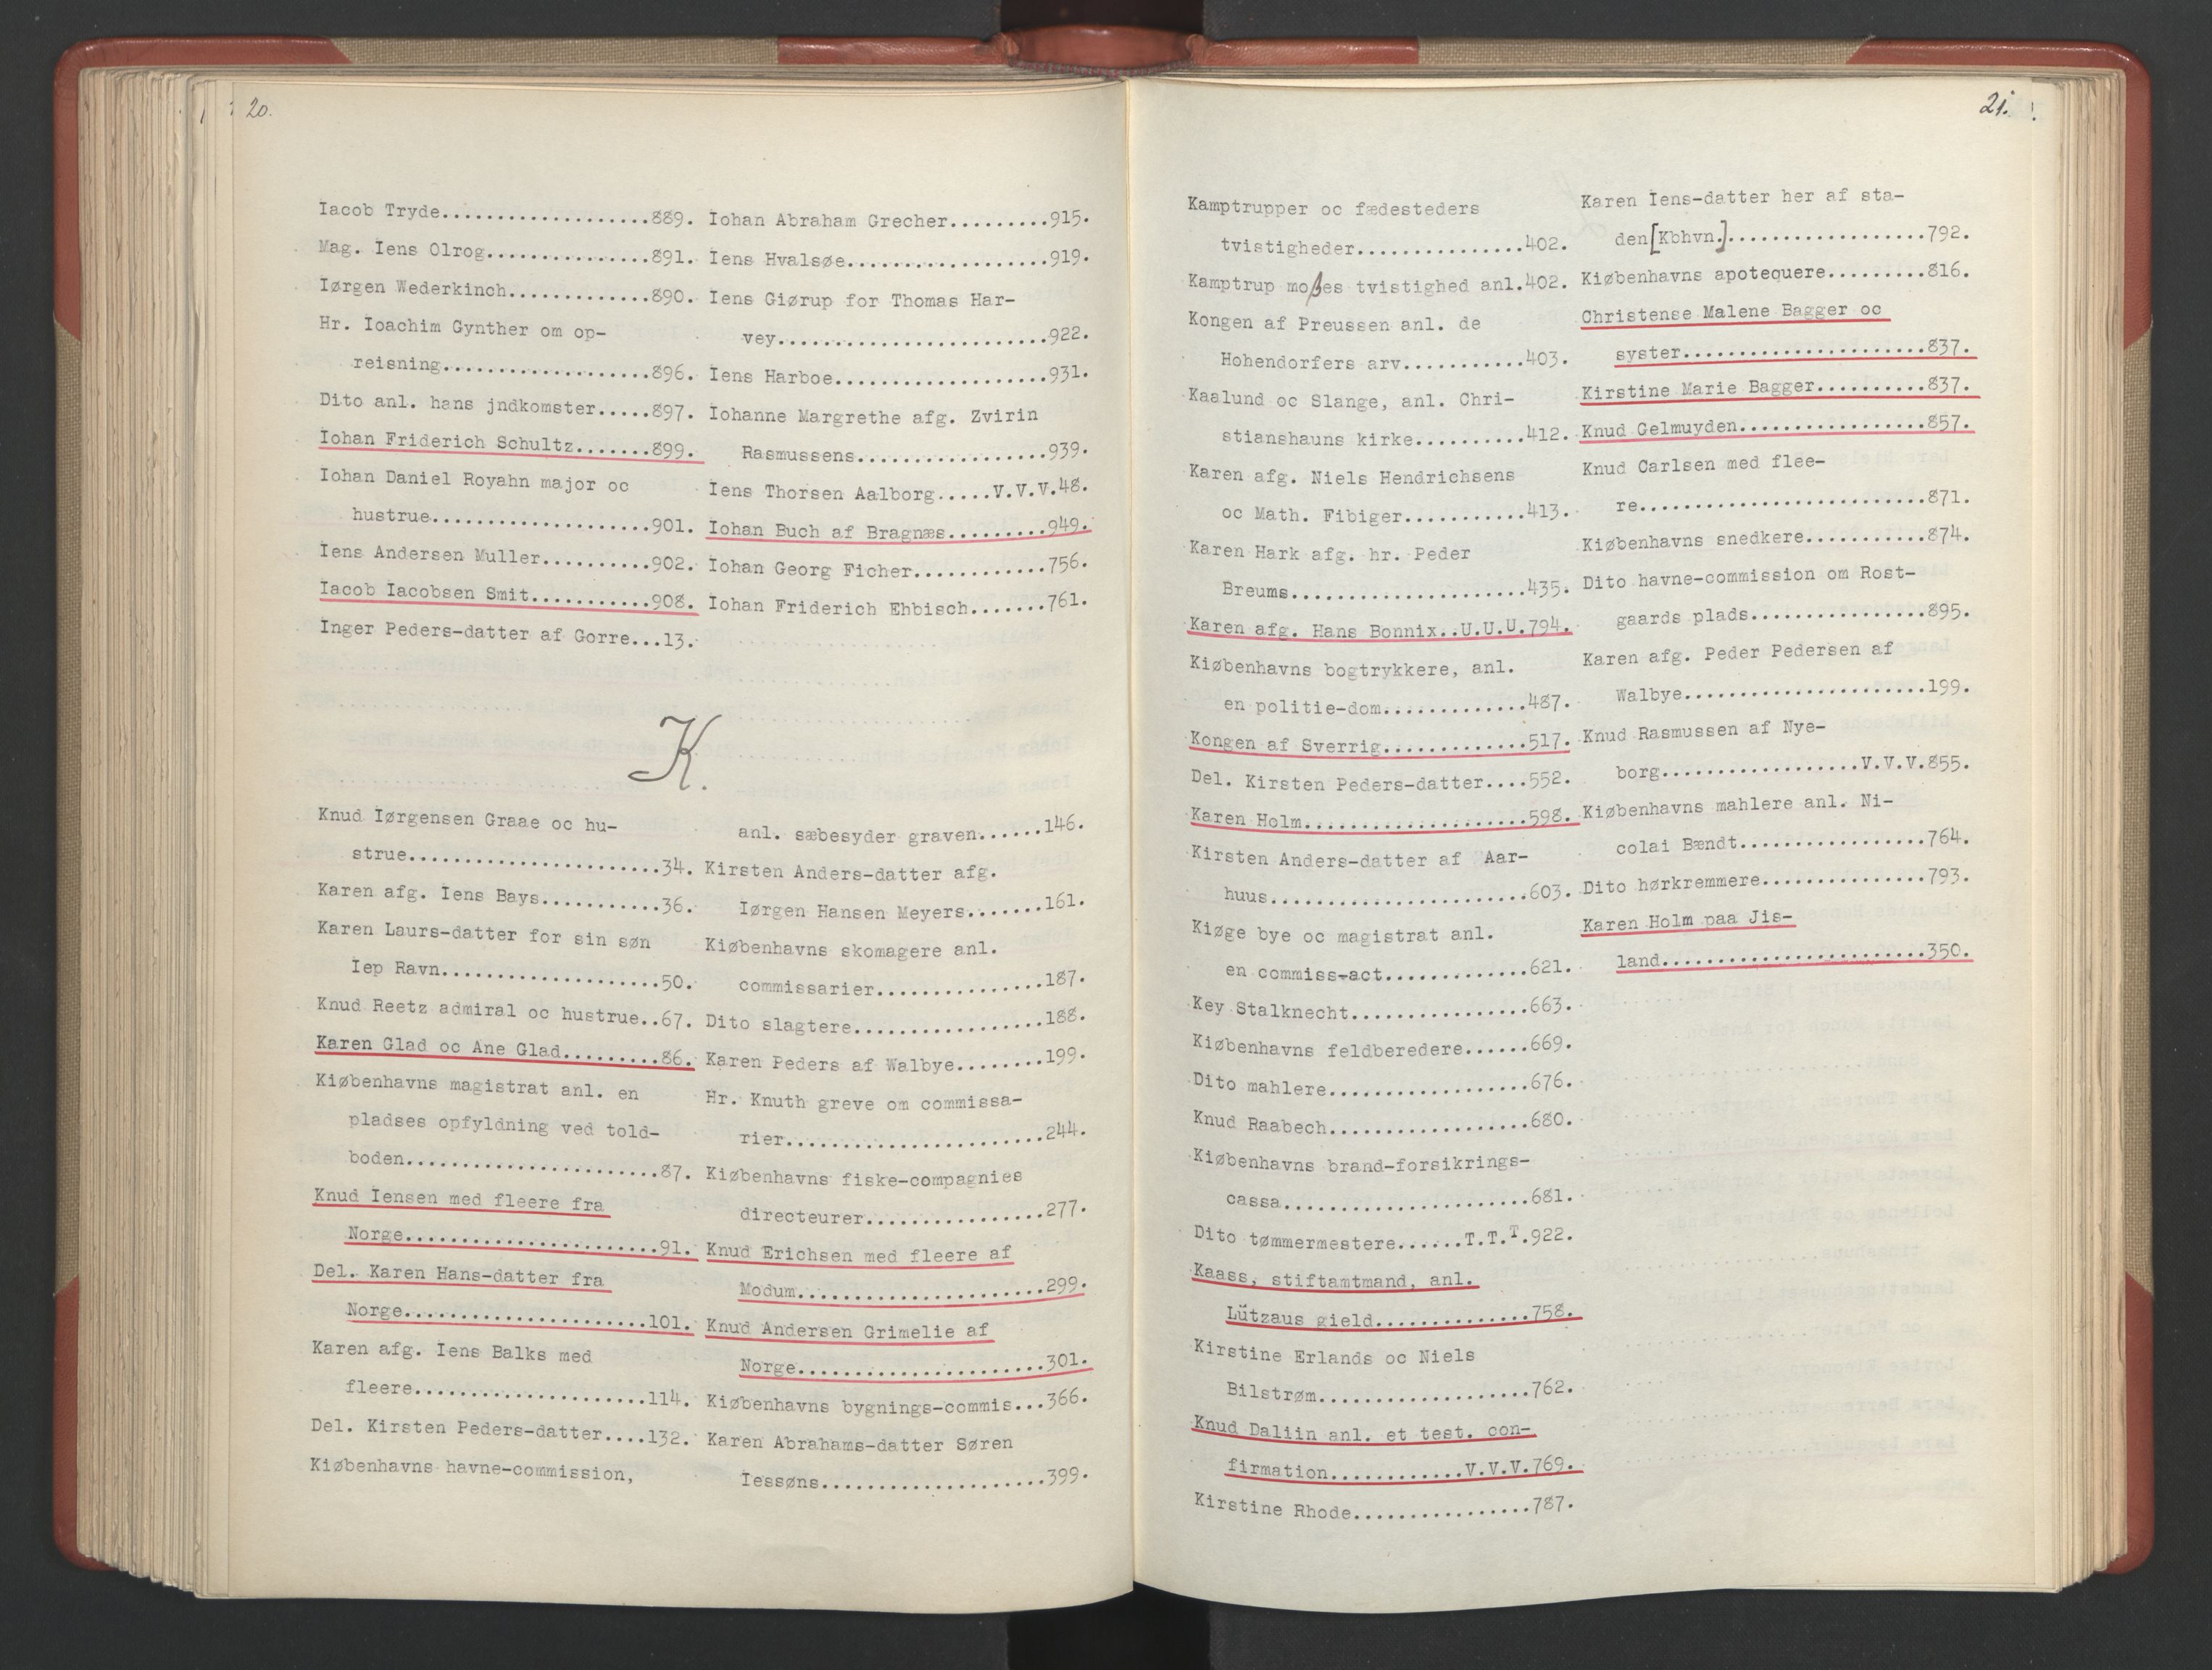 20.
Iacob Tryde...................889.
Mag. Iens Olrog...............891.
Iørgen Wederkinch.............890.
Hr. Ioachim Gynther om op-
reisning...................896.
Dito anl. hans jndkomster.....897.
Iohan Friderich Schultz.......899.
Iohan Daniel Royahn major oc
hustrue....................901.
Iens Andersen Muller..........902.
Iacob Iacobsen Smit...........908.
Inger Peders-datter af Gorre...13.
Iohan Abraham Grecher.........915.
Iens Hvalsøe..................919.
Iens Giørup for Thomas Har-
vey.........................922.
Iens Harboe...................931.
Iohanne Margrethe afg. Zvirin
Rasmussens.................939.
Iens Thorsen Aalborg.....V.V.V.48.
Iohan Buch af Bragnæs.........949.
Iohan Georg Ficher............756.
Iohan Friderich Ehbisch.......761.
K.
Knud Iørgensen Graae oc hu-
strue.......................34.
Karen afg. Iens Bays...........36.
Karen Laurs-datter for sin søn
Iep Ravn....................50.
Knud Reetz admiral oc hustrue..67.
Karen Glad oc Ane Glad.........86.
Kiøbenhavns magistrat anl. en
pladses opfyldning ved told-
boden.......................87.
Knud Iensen med fleere fra
Norge.......................91.
Del. Karen Hans-datter fra
Norge......................101.
Karen afg. Iens Balks med
fleere.....................114.
Del. Kirsten Peders-datter....132.
Kiøbenhavns havne-commission,
anl. sæbesyder graven......146.
Kirsten Anders-datter afg.
Iørgen Hansen Meyers.......161.
Kiøbenhavns skomagere anl.
commissarier...............187.
Dito slagtere.................188.
Karen Peders af Walbye........199.
Hr. Knuth greve om commissa-
rier.......................244.
Kiøbenhavns fiske-compagnies
directeurer................277.
Knud Erichsen med fleere af
Modum......................299.
Knud Andersen Grimelie af
Norge......................301.
Kiøbenhavns bygnings-commis...366.
Karen Abrahams-datter Søren
Iessøns....................399.
21.
Kamptrupper oc fædesteders
tvistigheder...............402.
Kamptrup moßes tvistighed anl.402.
Kongen af Preussen anl. de
Hohendorfers arv...........403.
Kaalund oc Slange, anl. Chri-
stianshauns kirke..........412.
Karen afg. Niels Hendrichsens
oc Math. Fibiger...........413.
Karen Hark afg. hr. Peder
Breums.....................435.
Karen afg. Hans Bonnix..U.U.U.794.
Kiøbenhavns bogtrykkere, anl.
en politie-dom.............487.
Kongen af Sverrig.............517.
Del. Kirsten Peders-datter....552.
Karen Holm....................598.
Kirsten Anders-datter af Aar-
huus.......................603.
Kiøge bye oc magistrat anl.
en commiss-act.............621.
Key Stalknecht................663.
Kiøbenhavns feldberedere......669.
Dito mahlere..................676.
Knud Raabech..................680.
Kiøbenhavns brand-forsikrings-
cassa......................681.
Dito tømmermestere......T.T.T.922.
Kaass, stiftamtmand, anl.
Lützaus gield..............758.
Kirstine Erlands oc Niels
Bilstrøm...................762.
Knud Daliin anl. et test. con-
firmation............V.V.V.769.
Kirstine Rhode................787.
Karen Iens-datter her af sta-
den[Kbhvn.]..................792.
Kiøbenhavns apotequere.........816.
Christense Malene Bagger oc
syster......................837.
Kirstine Marie Bagger..........837.
Knud Gelmuyden.................857.
Knud Carlsen med flee-
re..........................871.
Kiøbenhavns snedkere...........874.
Dito havne-commission om Rost-
gaards plads................895.
Karen afg. Peder Pedersen af
Walbye......................199.
Knud Rasmussen af Nye-
borg..................V.V.V.855.
Kiøbenhavns mahlere anl. Ni-
colai Bændt.................764.
Dito hørkremmere...............793.
Karen Holm paa Jis-
land........................350.